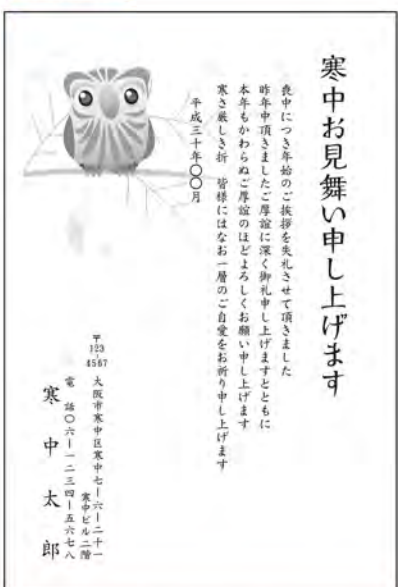 寒中お見舞い申し上げます
喪中につき年始のご挨拶を失礼させて頂きました
昨年中頂きましたご厚誼に深く御礼申し上げますとともに
本年もかわらぬご厚誼のほどよろしくお願い申し上げます
寒さ厳しき折 皆様にはなお一層のご自愛をお祈り申し上げます
平成三十年〇〇月
〒123-4567
大阪市寒中区寒中七ー六ー二十一
寒中ビル二階
電話〇六ー一二三四ー五六七八
寒中太郎